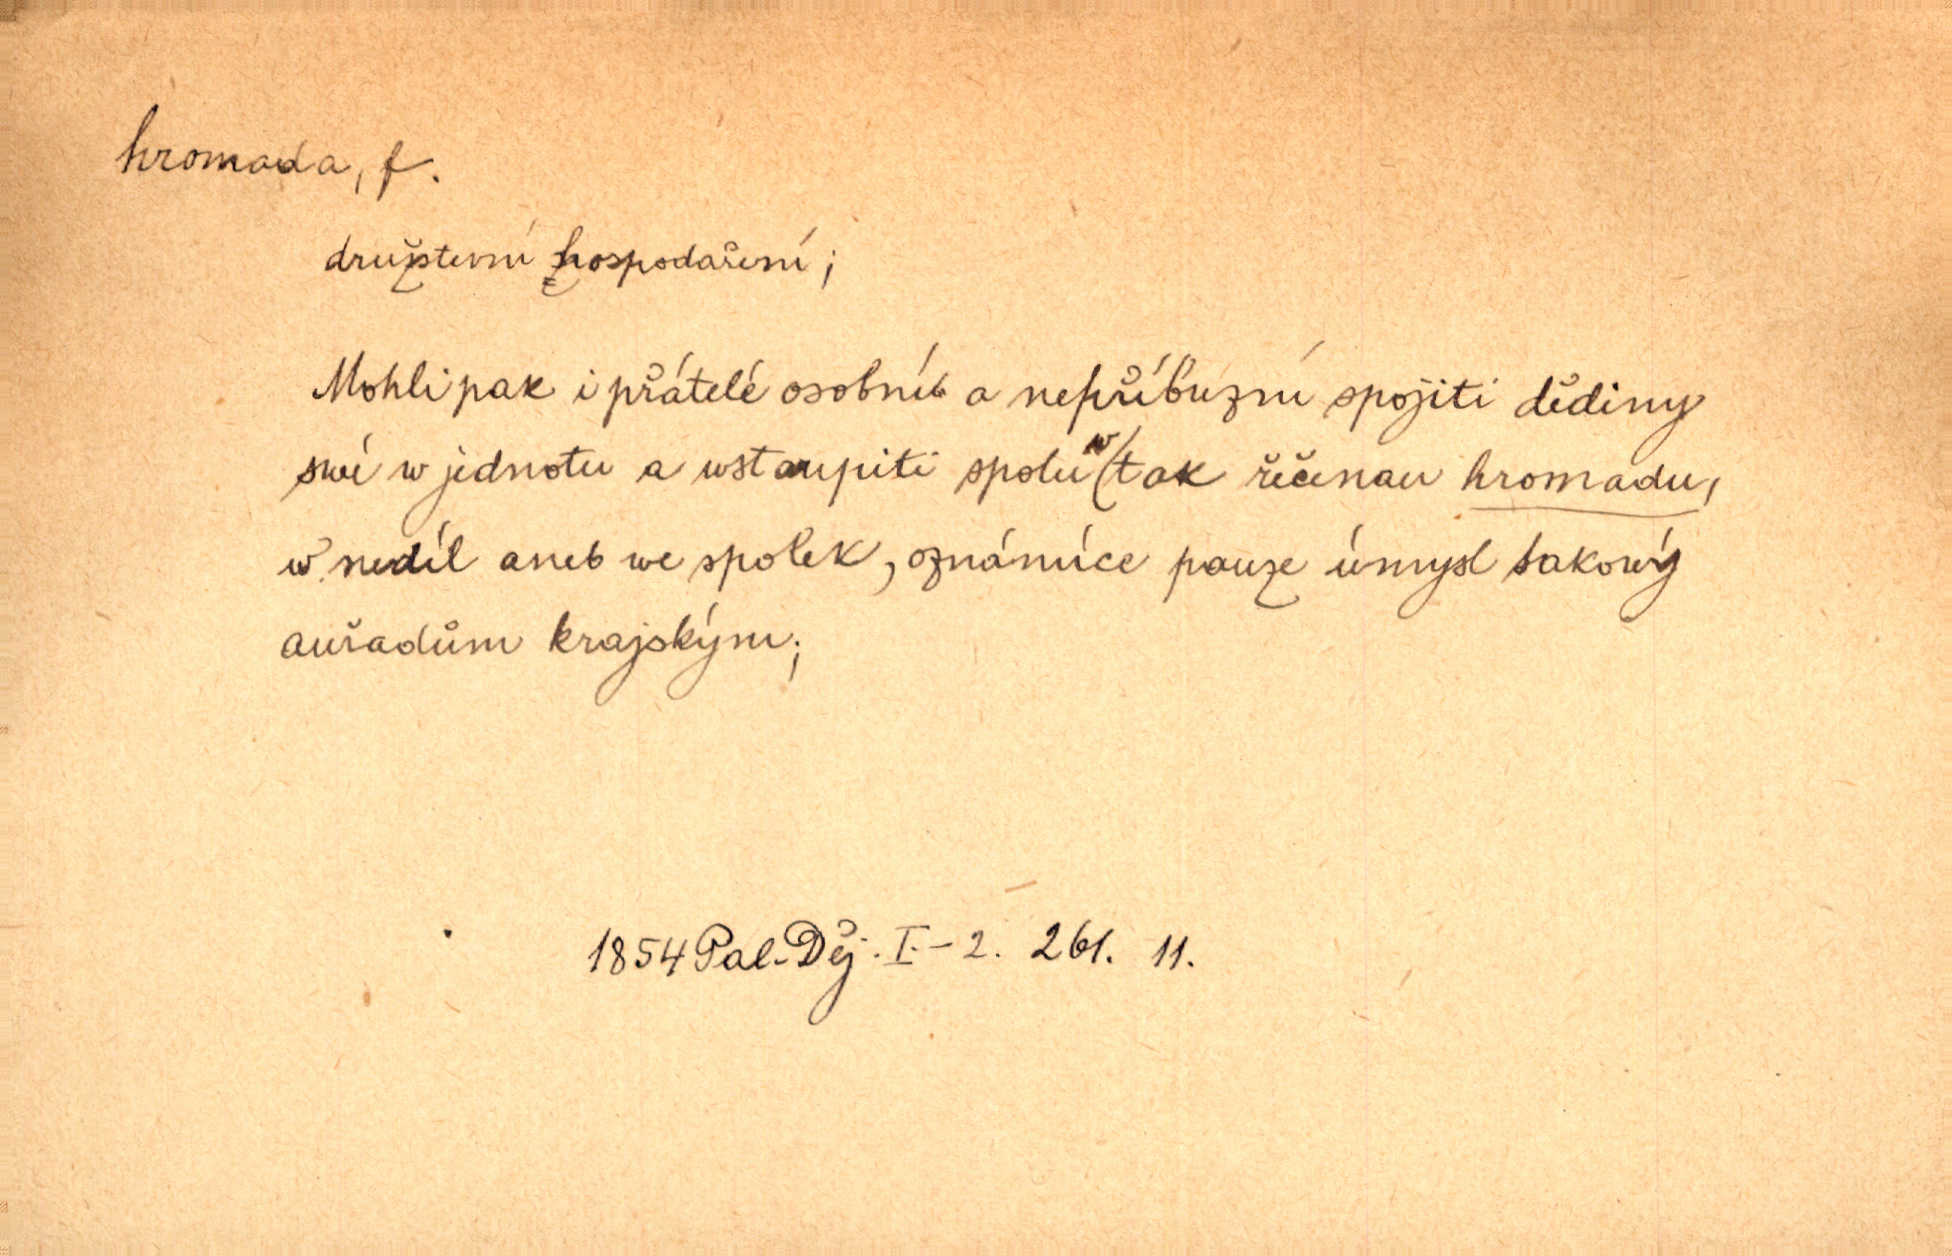 hromada, f.
družstevní hospodaření;
Mohli pak i přátelé osobní a nepříbuzní spojiti dědiny
swé w jednotu a wstaupiti spolu w tak řečenau hromadu,
w nedíl aneb we spolek, oznámíce pauze úmysl takowý
auřadům krajským;
1854 Pal. Děj. I-2. 261. 11.